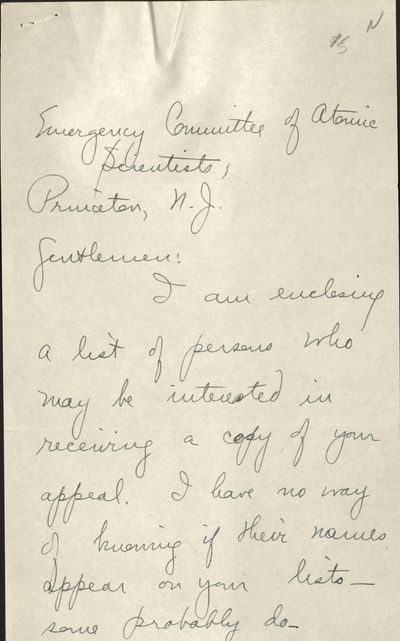 $5 N
Emergency Committee of Atomic
Scientists,
Princeton, N.J.
Gentlemen:
I am enclosing
a list of persons who
may be interested in
receiving a copy of your
appeal. I have no way
of knowing if their names
appear on your lists—
some probably do—